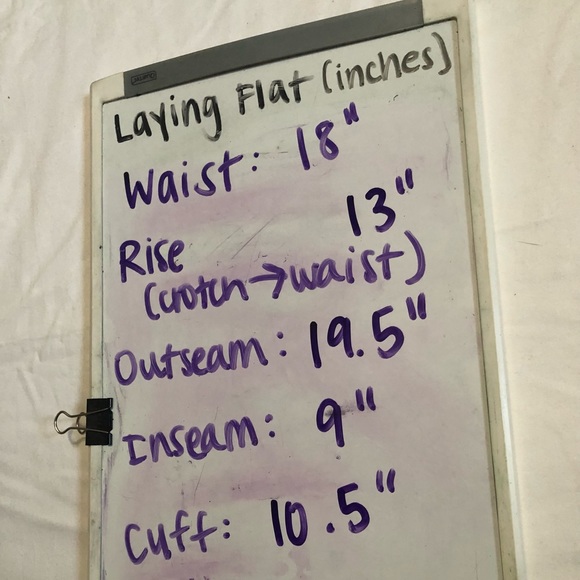 Laying Flat (inches)
Waist: 18"
Rise 13"
(crotch→waist)
Outseam: 19.5"
Inseam: 9"
Cuff: 10.5"